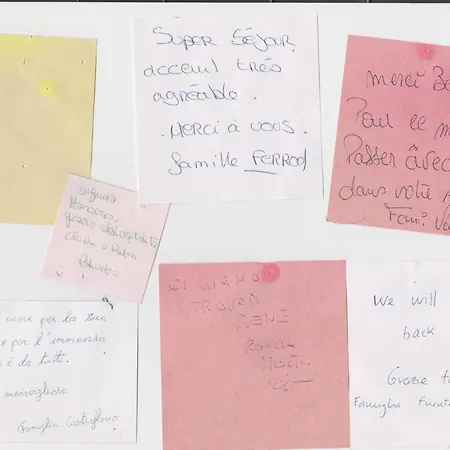 Super Séjour
accceuil très
agréable.
. MERCI à VOUS.
famille FERROD
merci Be
Pour ce m
Passer âvec
dans votre
Fami Va
Signor
Mancuso,
grazie dell'ospitalità
Palumbo
CI SIAMO
TROVATI
BENE
cuore per la sua
e per l'immensa
è da tutti.
meravigliose
Famiglia Castagliola
We will
back
Grazie t
Famiglia Fuent